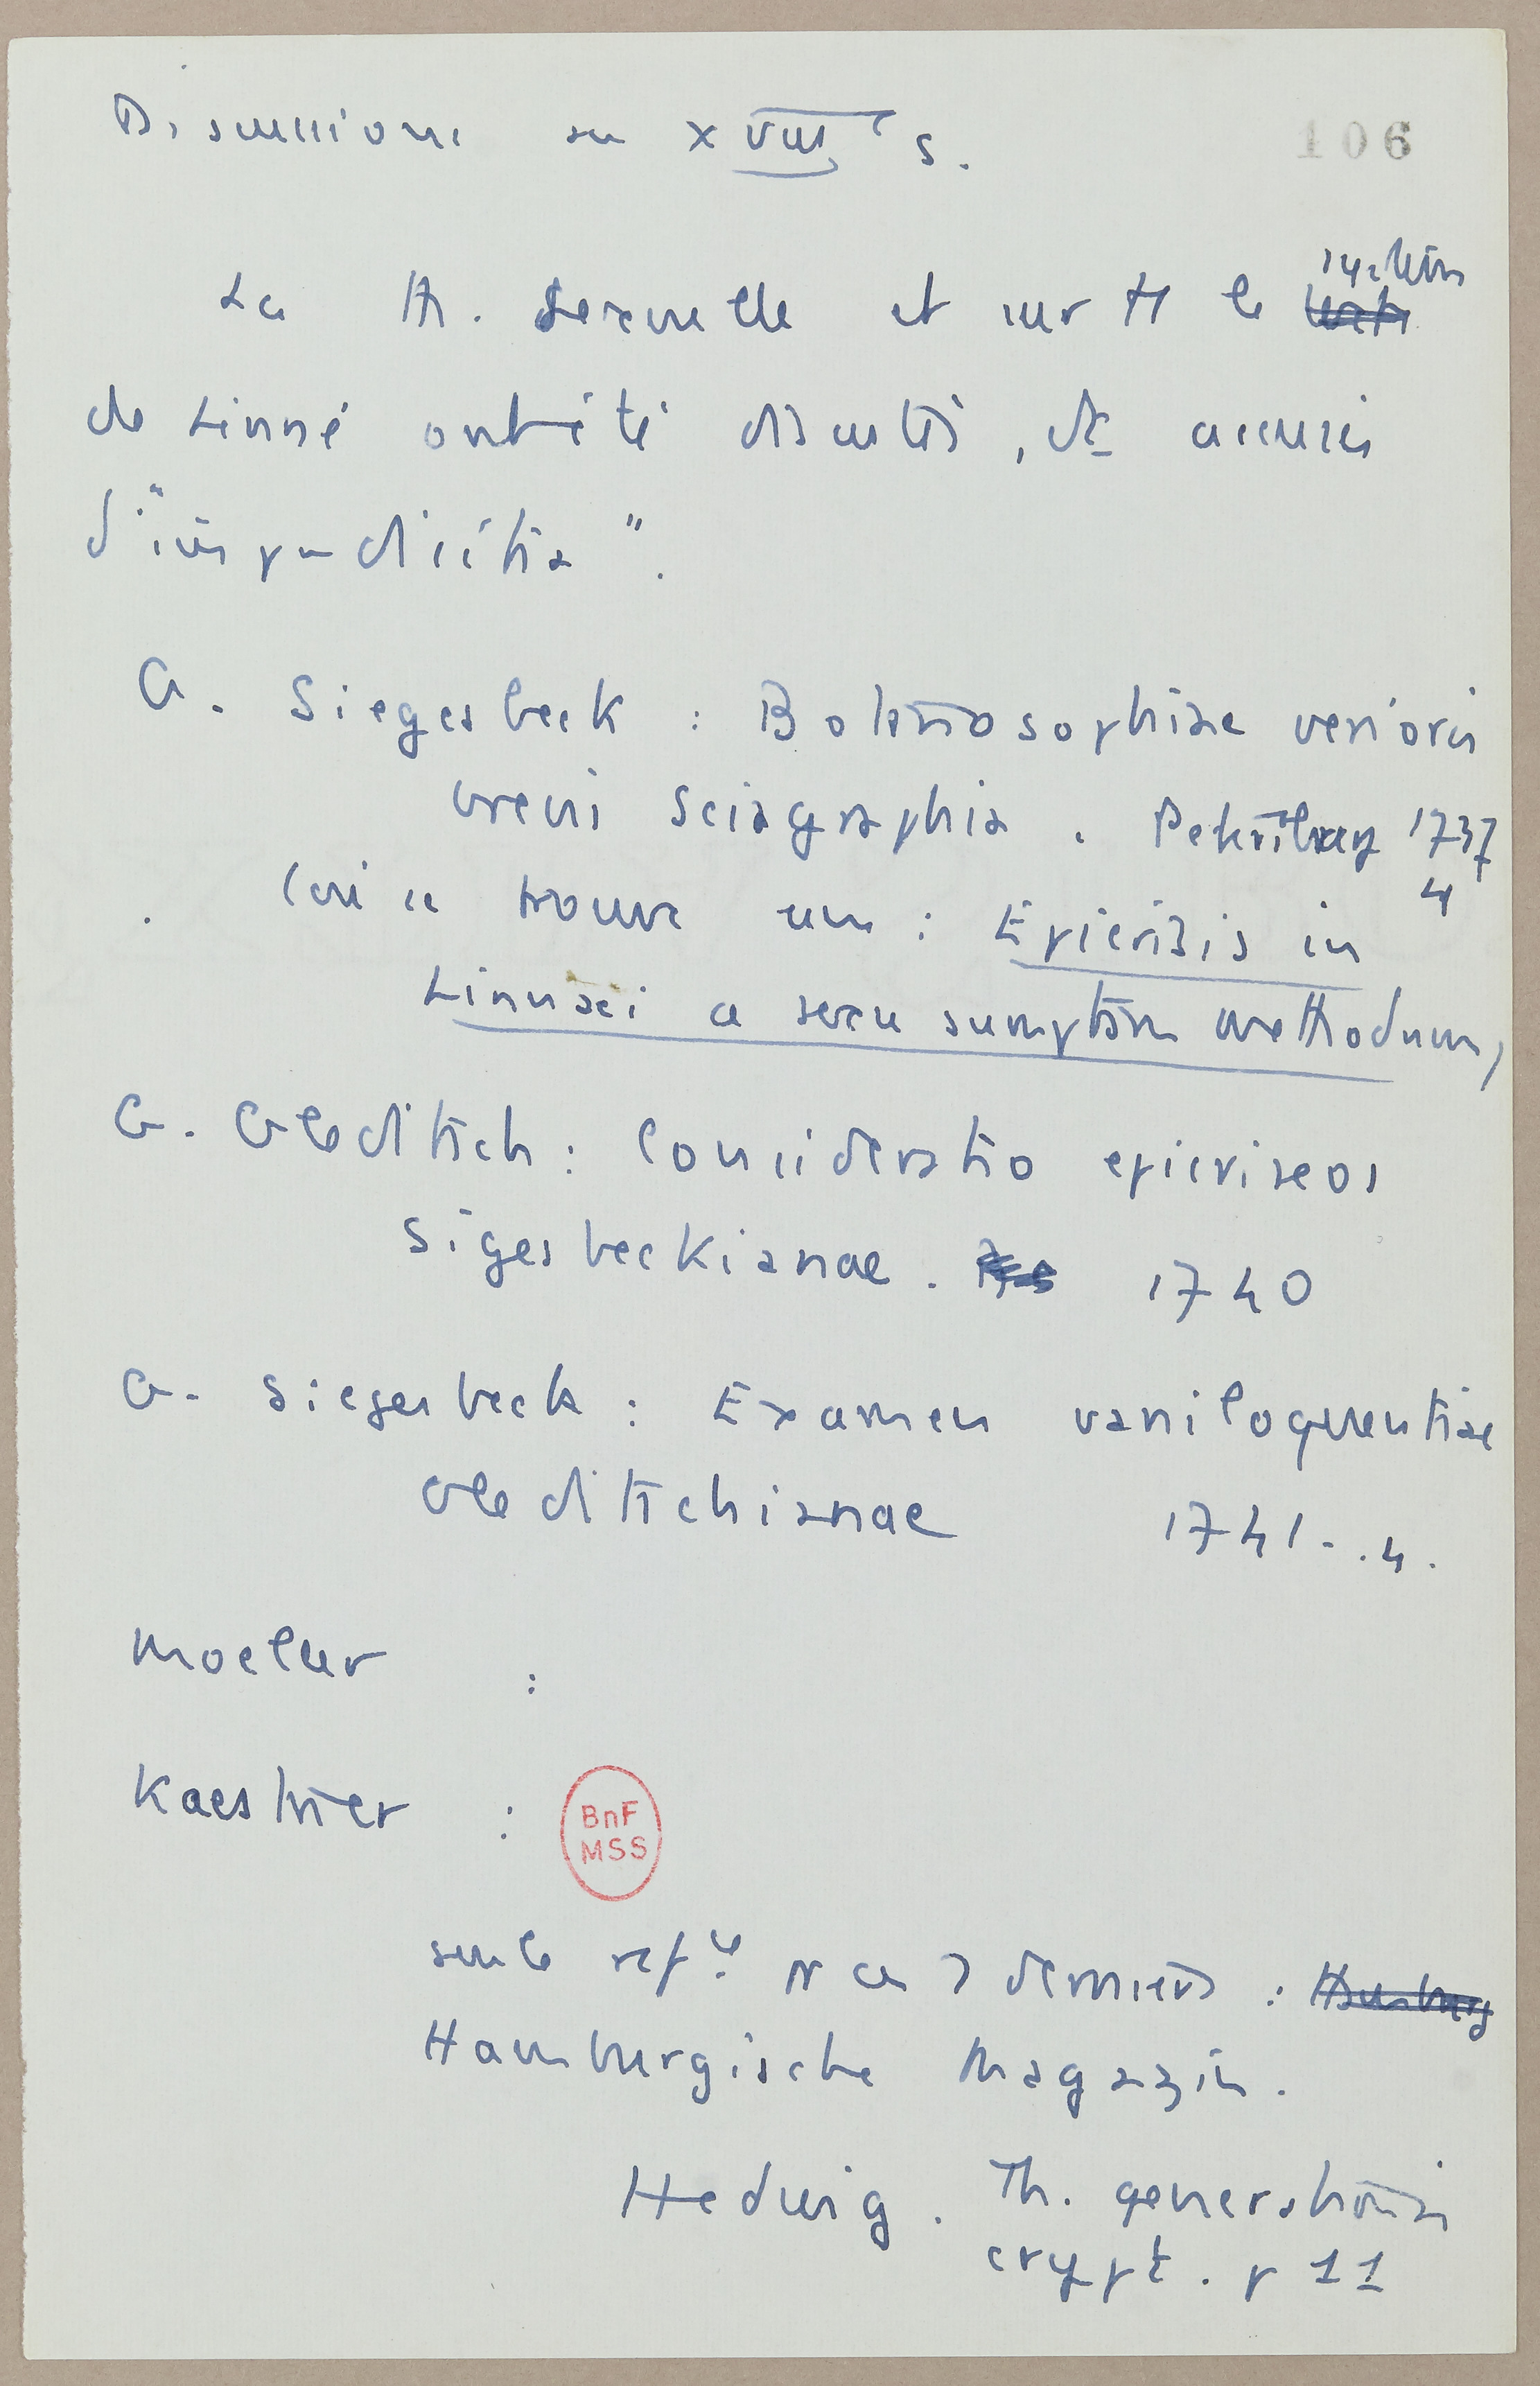 Discussions au XVIIIe s.
106
La th. sexuelle et surtt le système
de Linné ont été discutés, et accusés
d'"impudicitia".
G. Siegesbeck : Botanosophiae verioris
brevis sciagraphia. Petersburg 1737
4
(où se trouve une : Epicrisis in
Linnaei a sexu sumptam methodum)
G. Gleditsch : Consideratio epicriseos
Sigesbeckianae. 1740
G. Siegesbeck : Examen vaniloquentiae
Gleditschianae 1741. .4.
Moeller :
Kaestner :
BnF
MSS
seule refce pr ces 2 derniers : Hamburg
Hamburgische Magazin.
Hedwig. Th. generationis
crypt. p 11